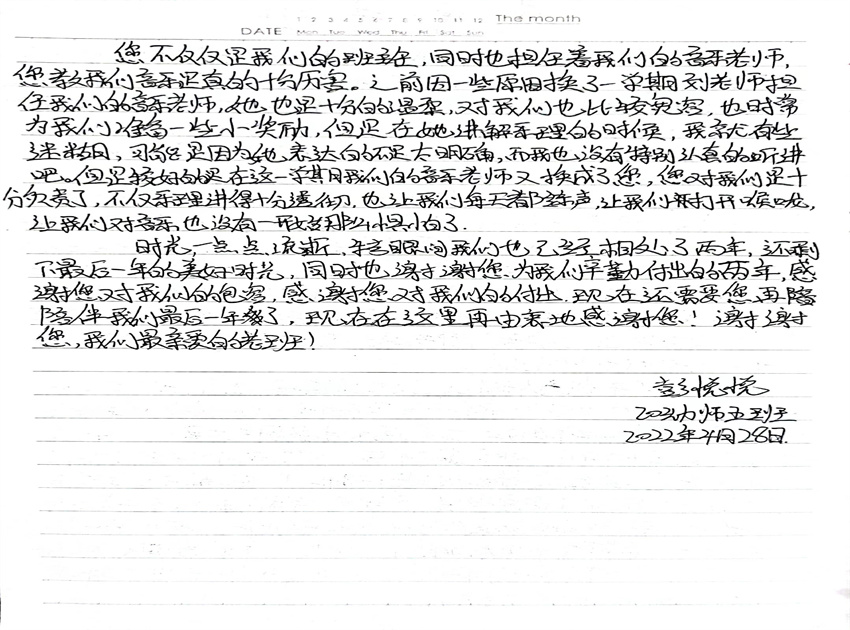 1 2 3 4 5 6 7 8 9 10 11 12 The month
DATE Mon Tue Wed Thu Fri Sat Sun
您不仅仅是我们的班主任，同时也担任着我们的音乐老师，
您教我们音乐是真的十分厉害。之前因一些原因换了一学期刘老师担
任我们的音乐老师，她也是十分的温柔，对我们也比较宽容，也时常
为我们准备一些小奖励，但是在她讲解乐理的时候，我亲尤有些
迷糊，可能是因为她表达的不是太明确，而我也没有特别认真的听讲
吧。但是较好的是在这一学期我们的音乐老师又换成了您，您对我们是十
分负责了，不仅乐理讲得十分透彻，也让我们每天都练声，让我们打开喉咙，
让我们对音乐也没有一开始那么惧怕了。
时光一点点流逝，转眼间我们也已经相处了两年，还剩
下最后一年的美好时光，同时也谢谢您为我们辛勤付出的两年，感
谢您对我们的包容，感谢您对我们的付出。现在还需要您再陪
陪伴我们最后一年载了，现在在这里再由衷地感谢您！谢谢
您，我们最亲爱的老班！
彭悦悦
幼师五班
2022年4月28日.